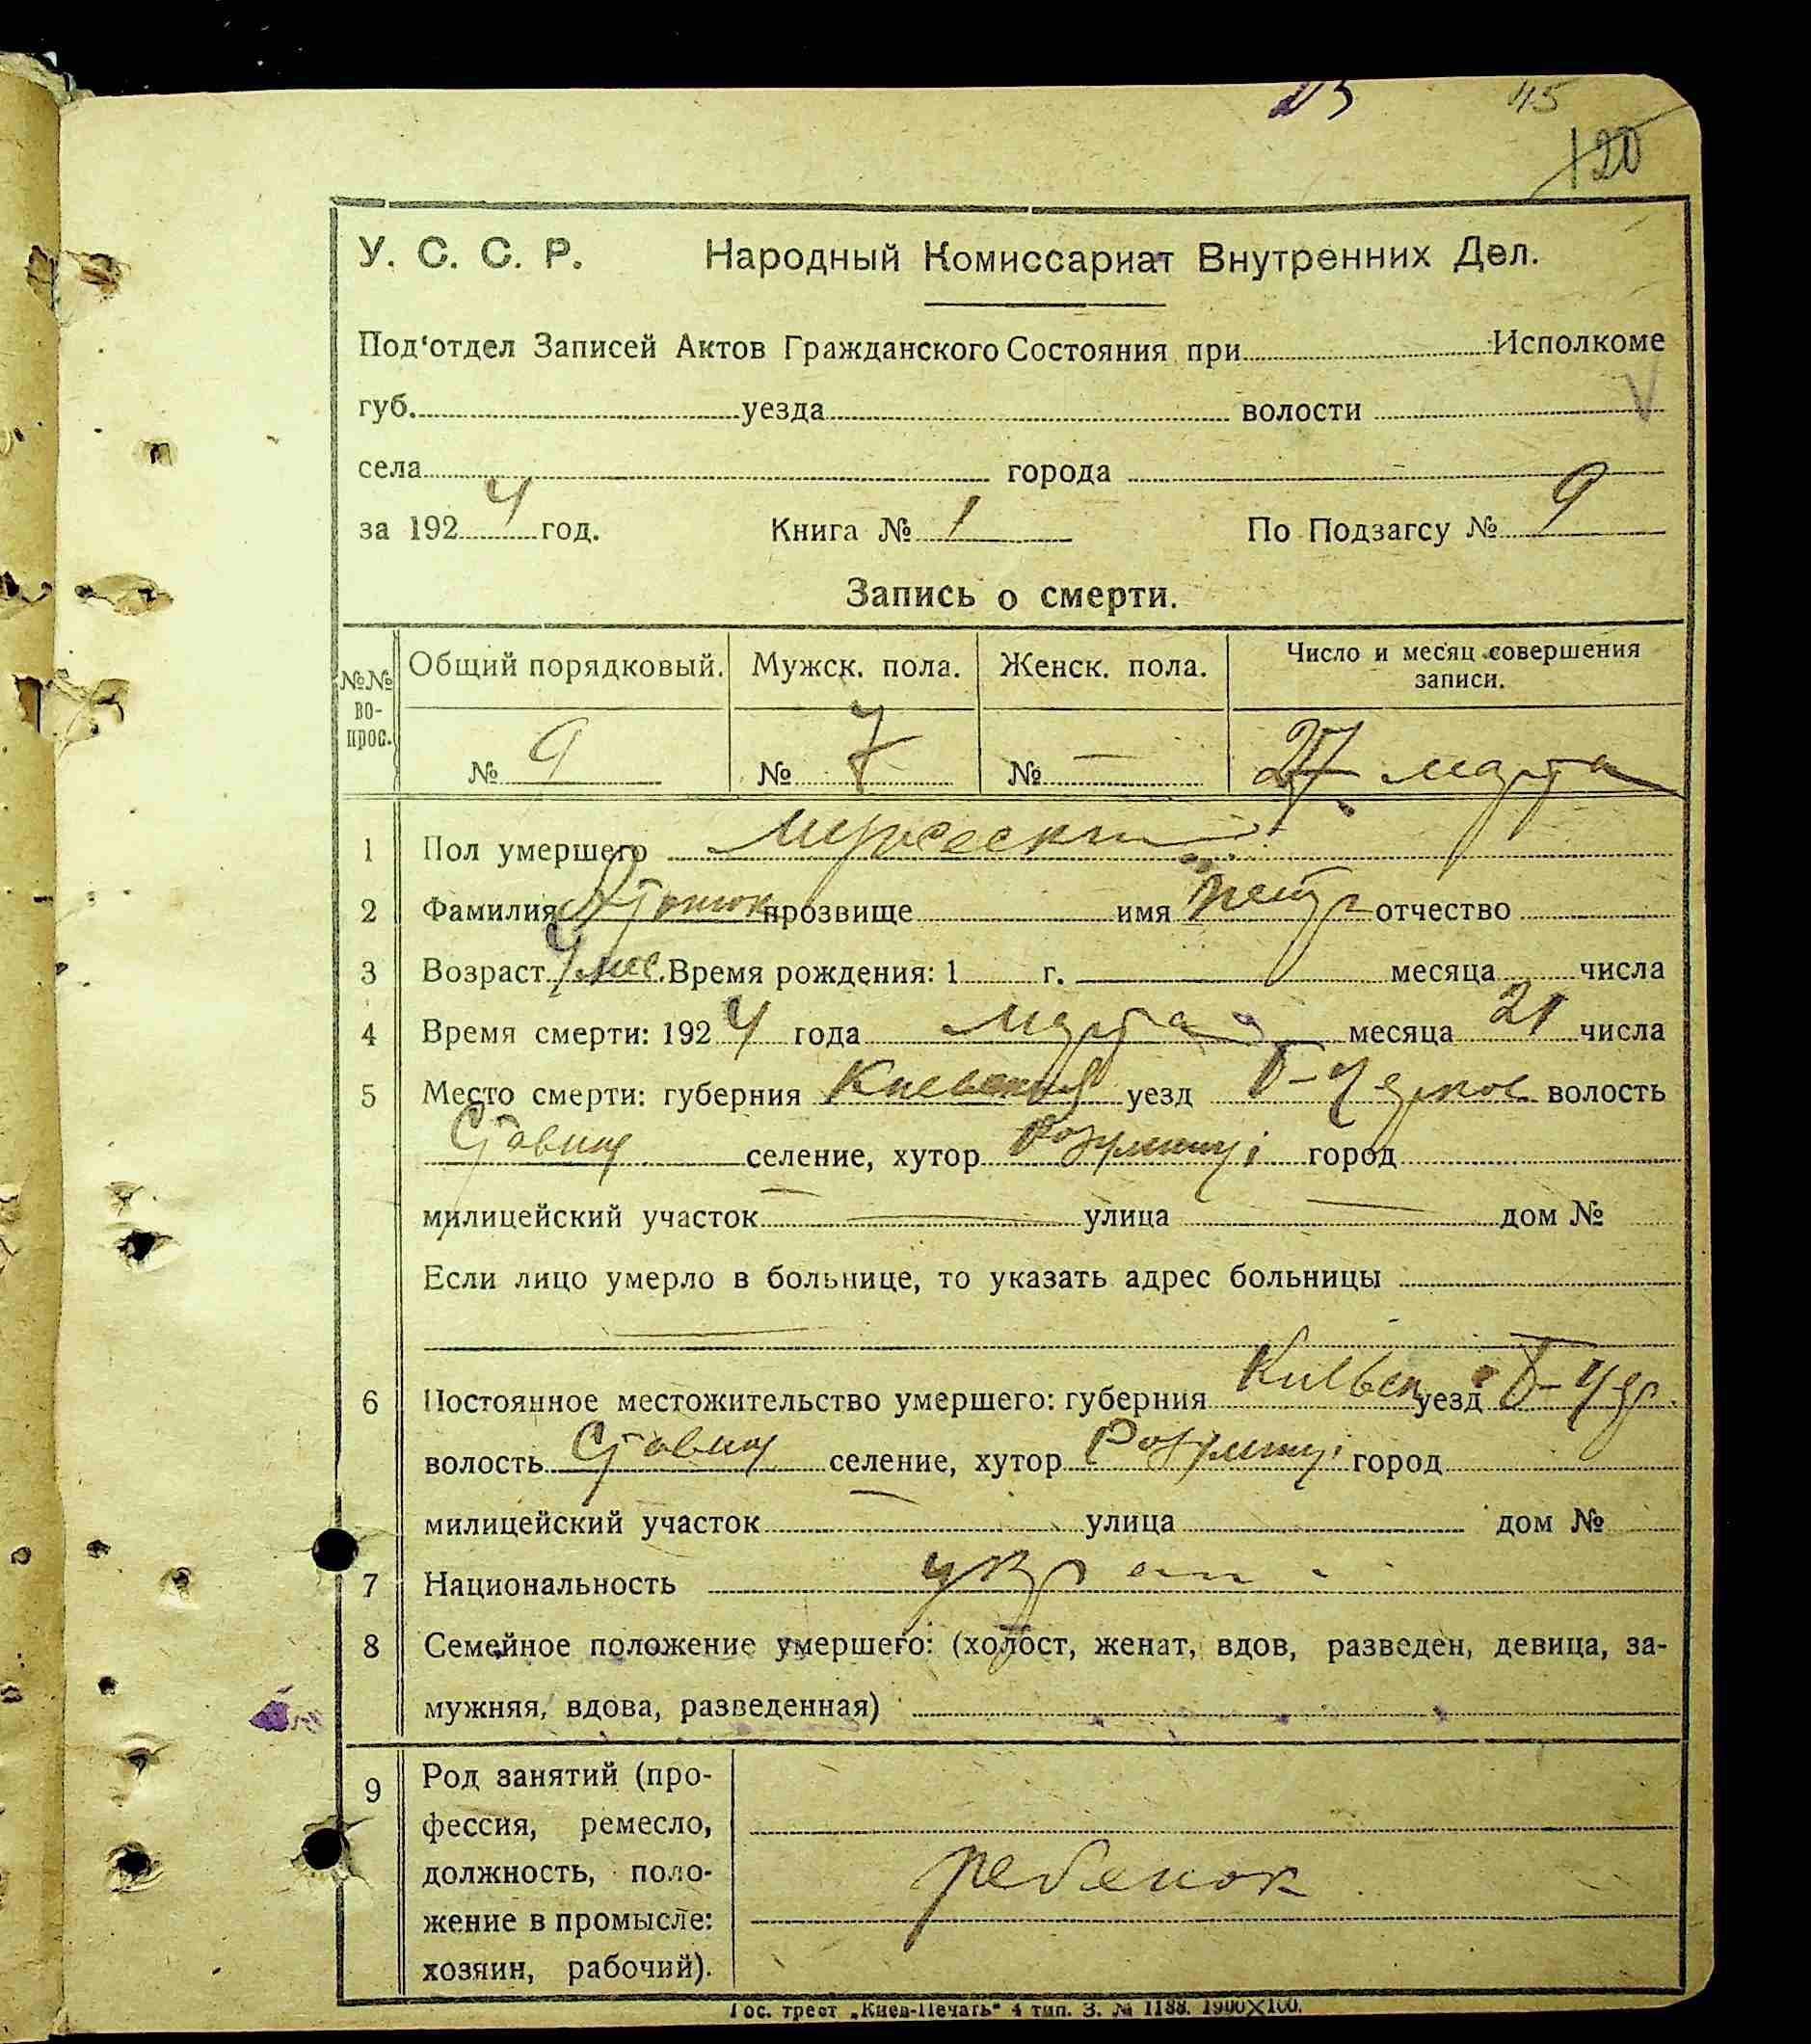 45
120
У. С. С. Р. Народный Комиссариат Внутренних Дел.
Под'отдел Записей Актов Гражданского Состояния при Исполкоме
губ. уезда волости
села города
за 1924 год. Книга № 1 По Подзагсу № 9
Запись о смерти.
№№ во-прос. Общий порядковый. Мужск. пола. Женск. пола. Число и месяц совершения записи.
№ 9 № 7 № — 27 марта
1 Пол умершего мужеский
2 Фамилия прозвище имя Петр отчество
3 Возраст 4 мес. Время рождения: 1 г. месяца числа
4 Время смерти: 1924 года марта месяца 21 числа
5 Место смерти: губерния Киевская уезд Б-Церков волость
Ставищ селение, хутор город
милицейский участок — улица — дом №
Если лицо умерло в больнице, то указать адрес больницы
6 Постоянное местожительство умершего: губерния Киевск уезд Б-Цер.
волость Ставищ селение, хутор город
милицейский участок улица дом №
7 Национальность украин
8 Семейное положение умершего: (холост, женат, вдов, разведен, девица, за-
мужняя, вдова, разведенная)
9 Род занятий (про-
фессия, ремесло,
должность, поло- ребенок
жение в промысле:
хозяин, рабочий).
Гос. трест „Киев-Печать" 4 тип. З. № 1188. 1900×100.